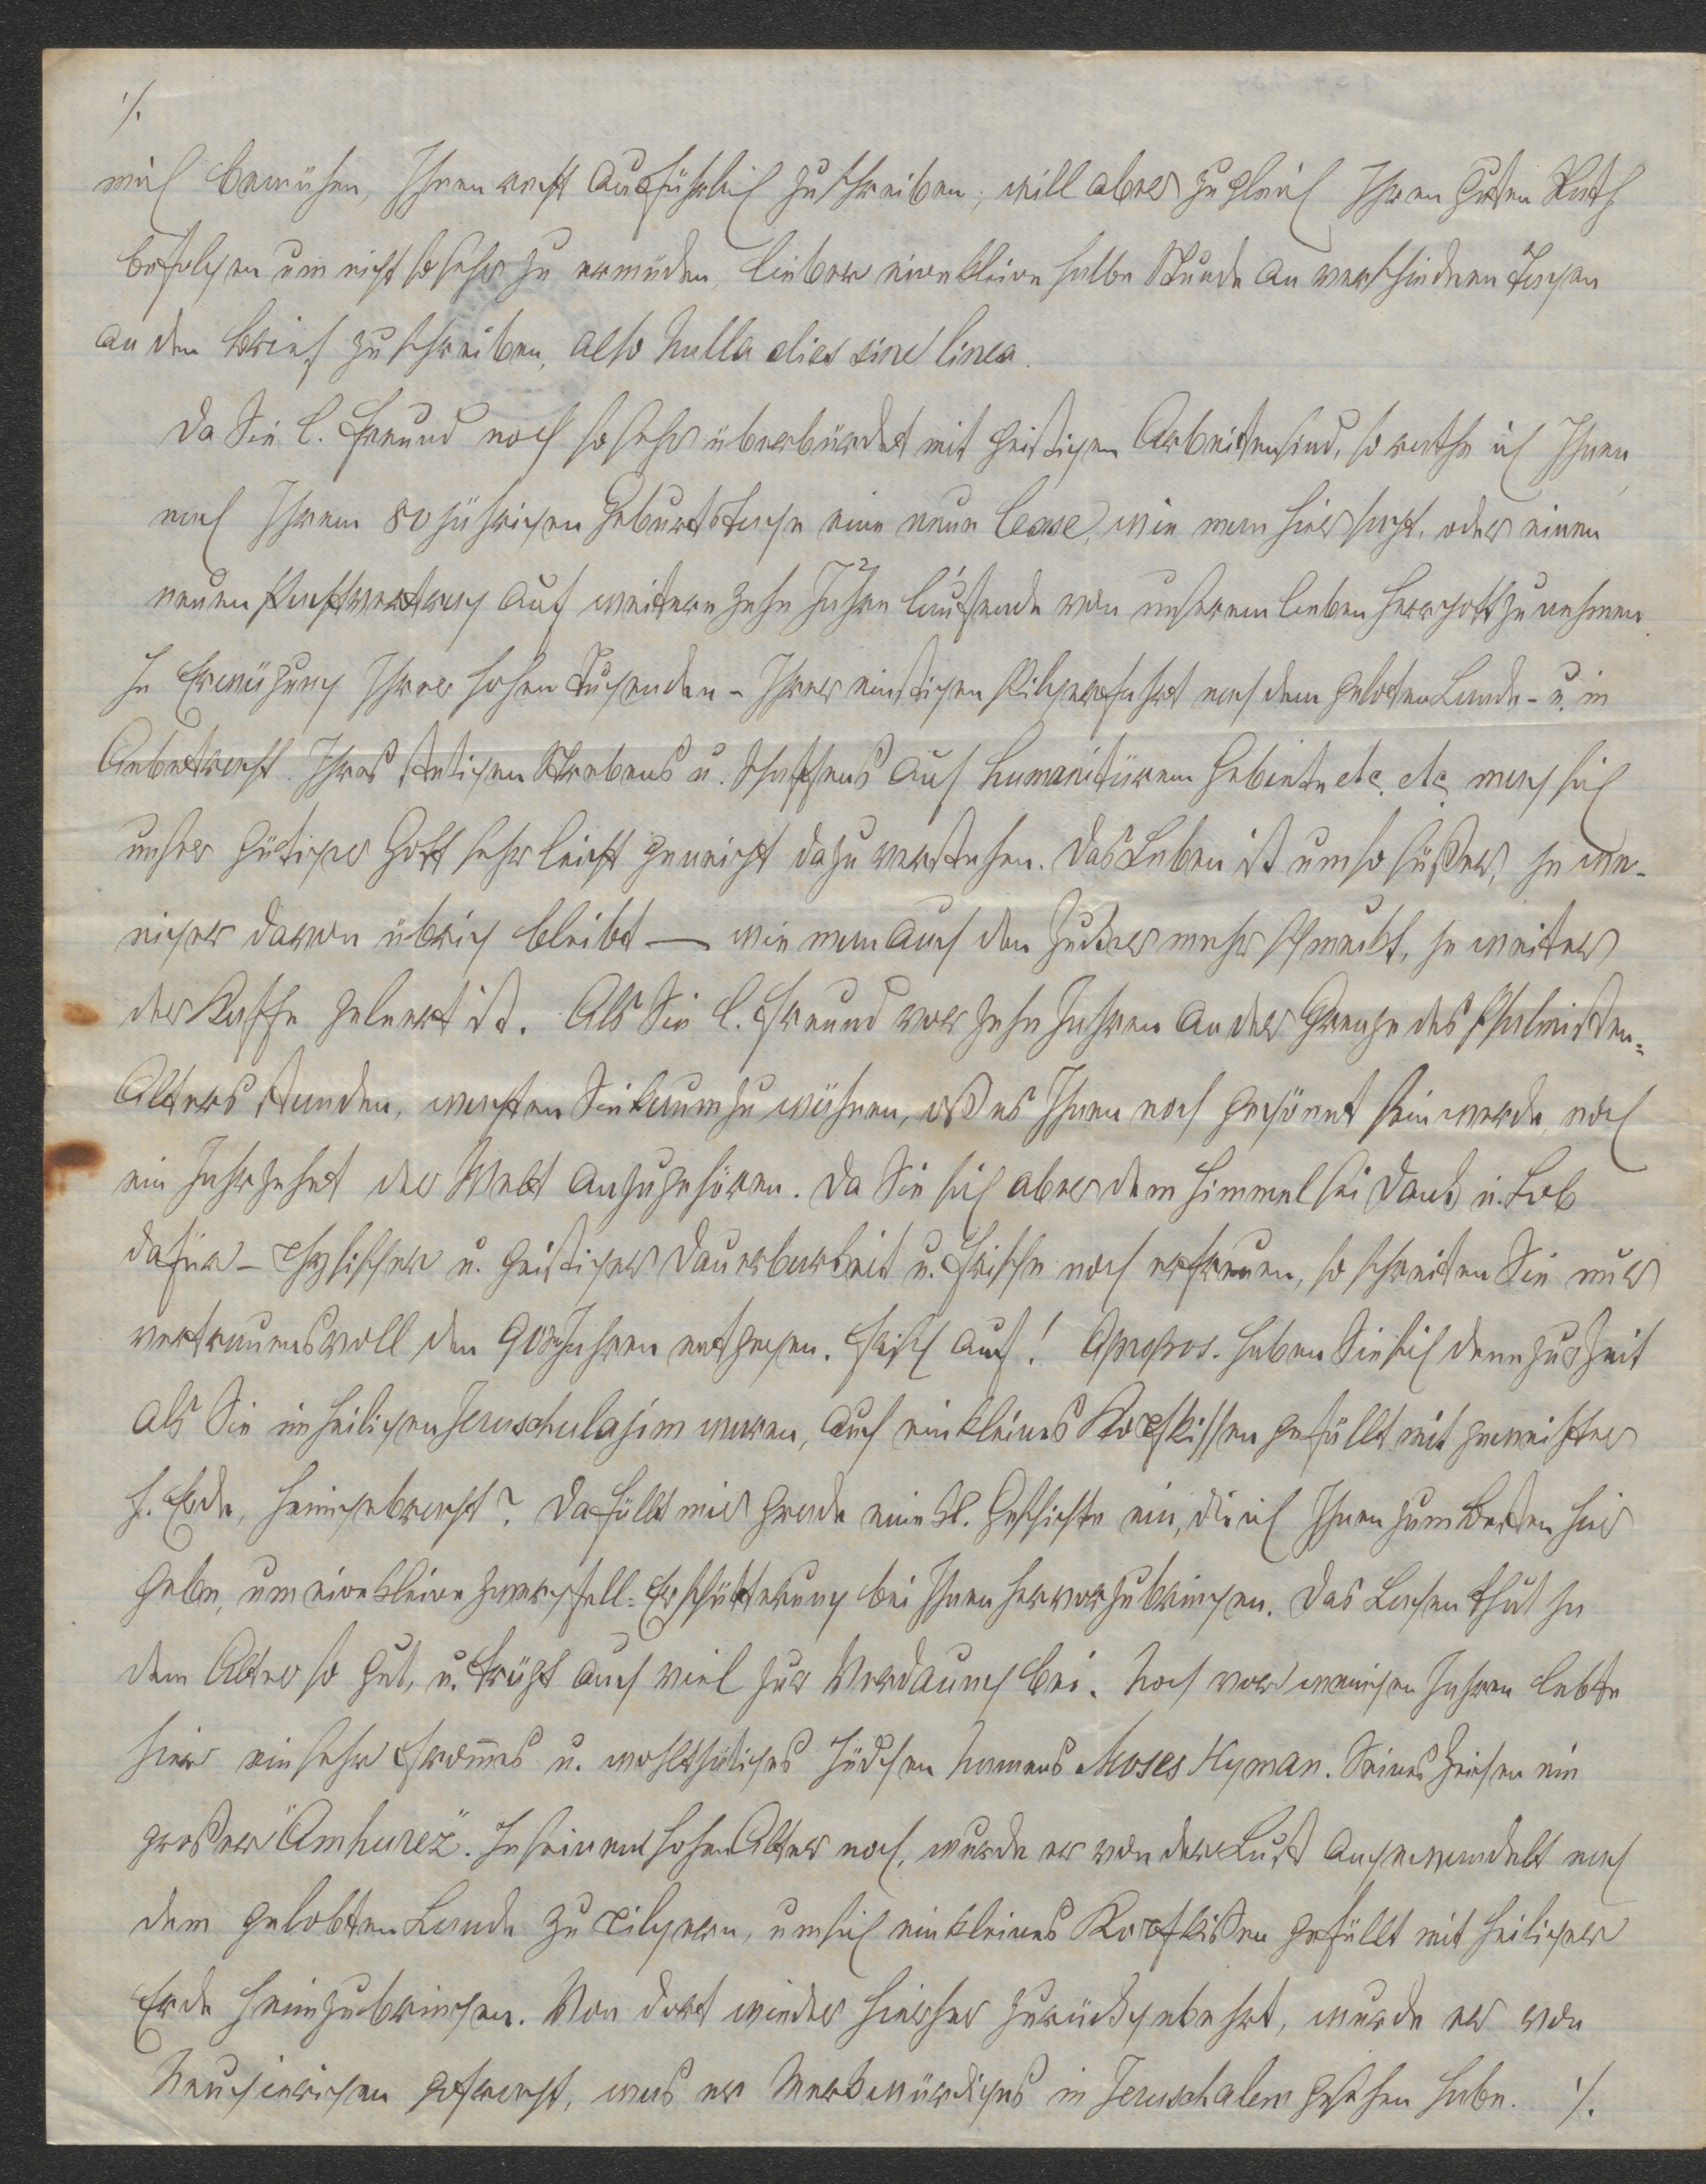 ./.
mich bemühen, Ihnen recht ausführlich zu schreiben; will aber zugleich Ihren guten Rath
befolgen um nicht so sehr zu ermüden, lieber eine kleine halbe Stunde an verschiedenen Tagen
an dem Brief zu schreiben, also Nulla dies sine linea.
Da Sie l. Freund noch so sehr überbürdet mit geistigen Arbeiten sind, so rathe ich Ihnen,
nach Ihrem 80 jährigen Geburtstage eine neue lease, wie man hier sagt, oder einen
neuen Pachtvertrag auf weitere zehn Jahre laufende von unserem lieben Herrgott zu nehmen.
In Erwägung Ihrer hohen Tugenden - Ihrer einstigen Pilgerfahrt nach dem gelobten Lande - u. in
Anbetracht Ihres stetigen Strebens u. Schaffens auf humanitärem Gebiete etc. etc. mag sich
unser gütiger Gott sehr leicht geneigt dazu verstehen. Das Leben ist umso süßer, je we-
niger davon übrig bleibt — wie man auch den Zucker mehr schmeckt, je weiter
der Kaffe geleert ist. Als Sie l. Freund vor zehn Jahren an der Grenze des Psalmisten=
Alters standen, wagten Sie kaum zu wähnen, daß es Ihnen noch gegönnt sein werde, noch
ein Jahrzehnt der Welt anzugehören. Da Sie sich aber dem Himmel sei Dank u. Lob
dafür - physischer u. geistiger Dauerbarkeit u. Frische noch erfreuen, so schreiten Sie nur
vertrauensvoll den 90er Jahren entgegen. Frisch auf! Apropos. Haben Sie sich denn zur Zeit
als Sie im heiligen Jeruschulajim waren, auch ein kleines Kopfkissen gefüllt mit geweihter
h. Erde, heimgebracht? Da fällt mir grade eine kl. Geschichte ein, die ich Ihnen zum Besten hier
gebe, um eine kleine Zwergfell=Erschütterung bei Ihnen hervorzubringen. Das Lachen thut ja
dem Alter so gut, u. trägt auch viel zur Verdauung bei. Noch vor wenigen Jahren lebte
hier ein sehr from̅es u. wohlthätiges Jüdchen Namens Moses Hyman. Seines Zeichen ein
großer "Amhurez". In seinem hohen Alter noch, wurde er von der Lust angewandelt nach
dem gelobten Lande zu pilgern, um sich ein kleines Kopfkißen gefüllt mit heiliger
Erde heimzubringen. Von dort wieder hierher zurückgekehrt, wurde er von
Neugierigen gefragt, was er Merkwürdiges in Jeruschalem gesehen habe. ./.